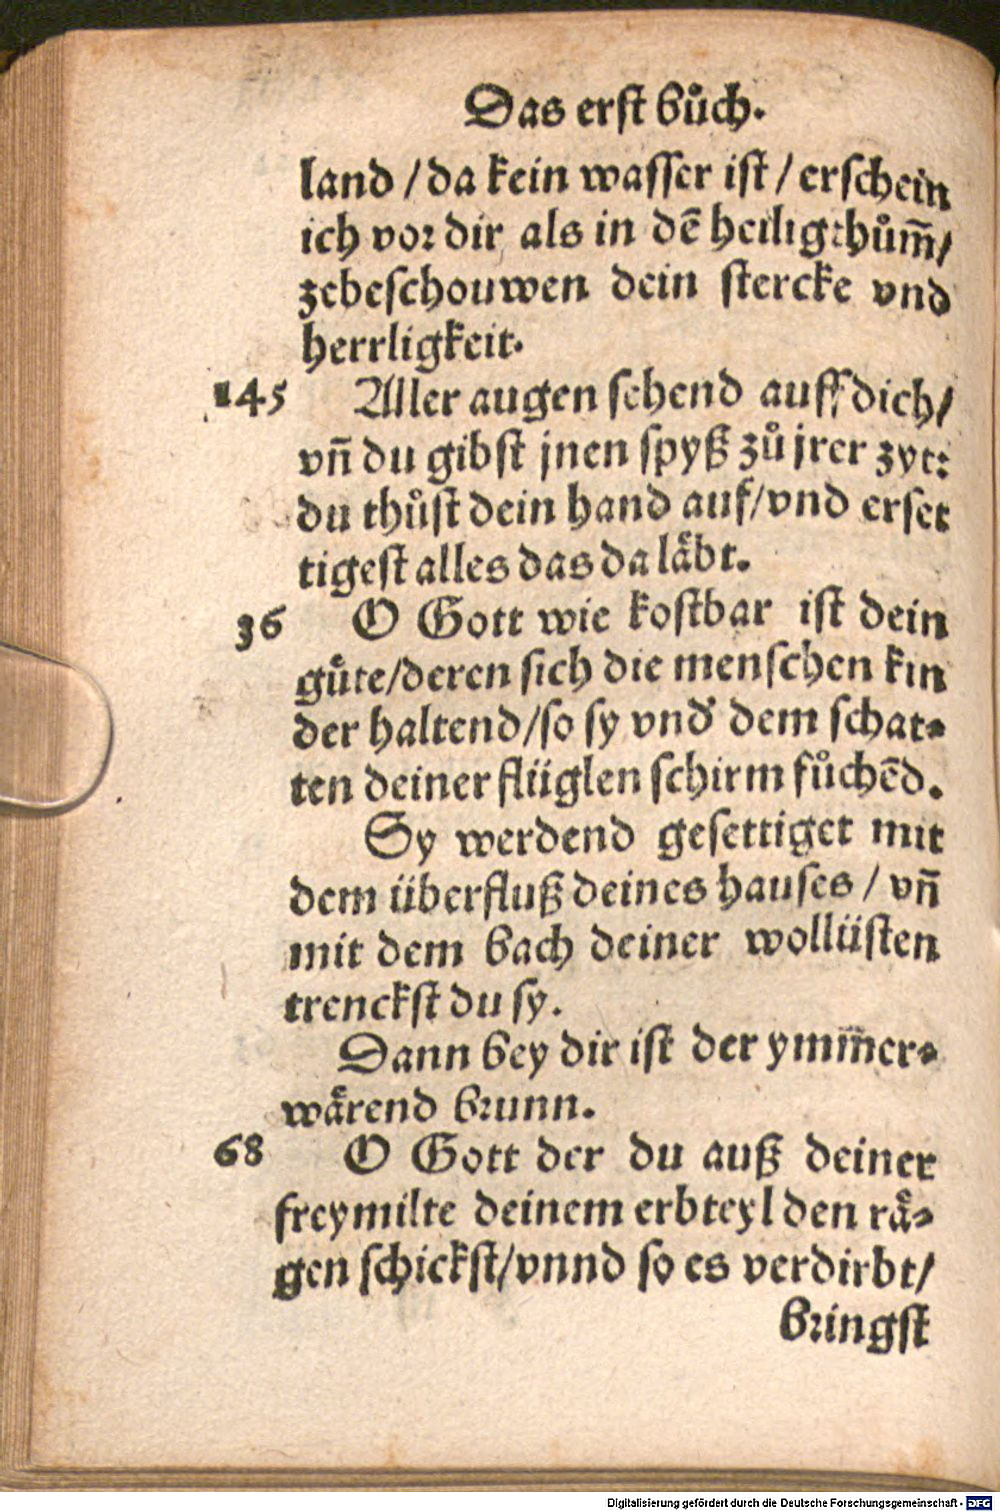 Das erst bůch.
land / da kein wasser ist / erschein
ich vor dir als in dē heiligthům̄/
zebeschouwen dein stercke vnd
herrligkeit.
145 Aller augen sehend auff dich/
vn̄ du gibst jnen spyß zů jrer zyt:
du thůst dein hand auf/vnd erset
tigest alles das da laͤbt.
36 O Gott wie kostbar ist dein
guͤte/deren sich die menschen kin
der haltend/so sy vnd' dem schat-
ten deiner flüglen schirm sůchēd.
Sy werdend gesettiget mit
dem überfluß deines hauses / vn̄
mit dem bach deiner wollüsten
trenckst du sy.
Dann bey dir ist der ymm̄er-
waͤrend brunn.
68 O Gott der du auß deiner
freymilte deinem erbteyl den raͤ-
gen schickst/vnnd so es verdirbt/
bringst
Digitalisierung gefördert durch die Deutsche Forschungsgemeinschaft - DFG